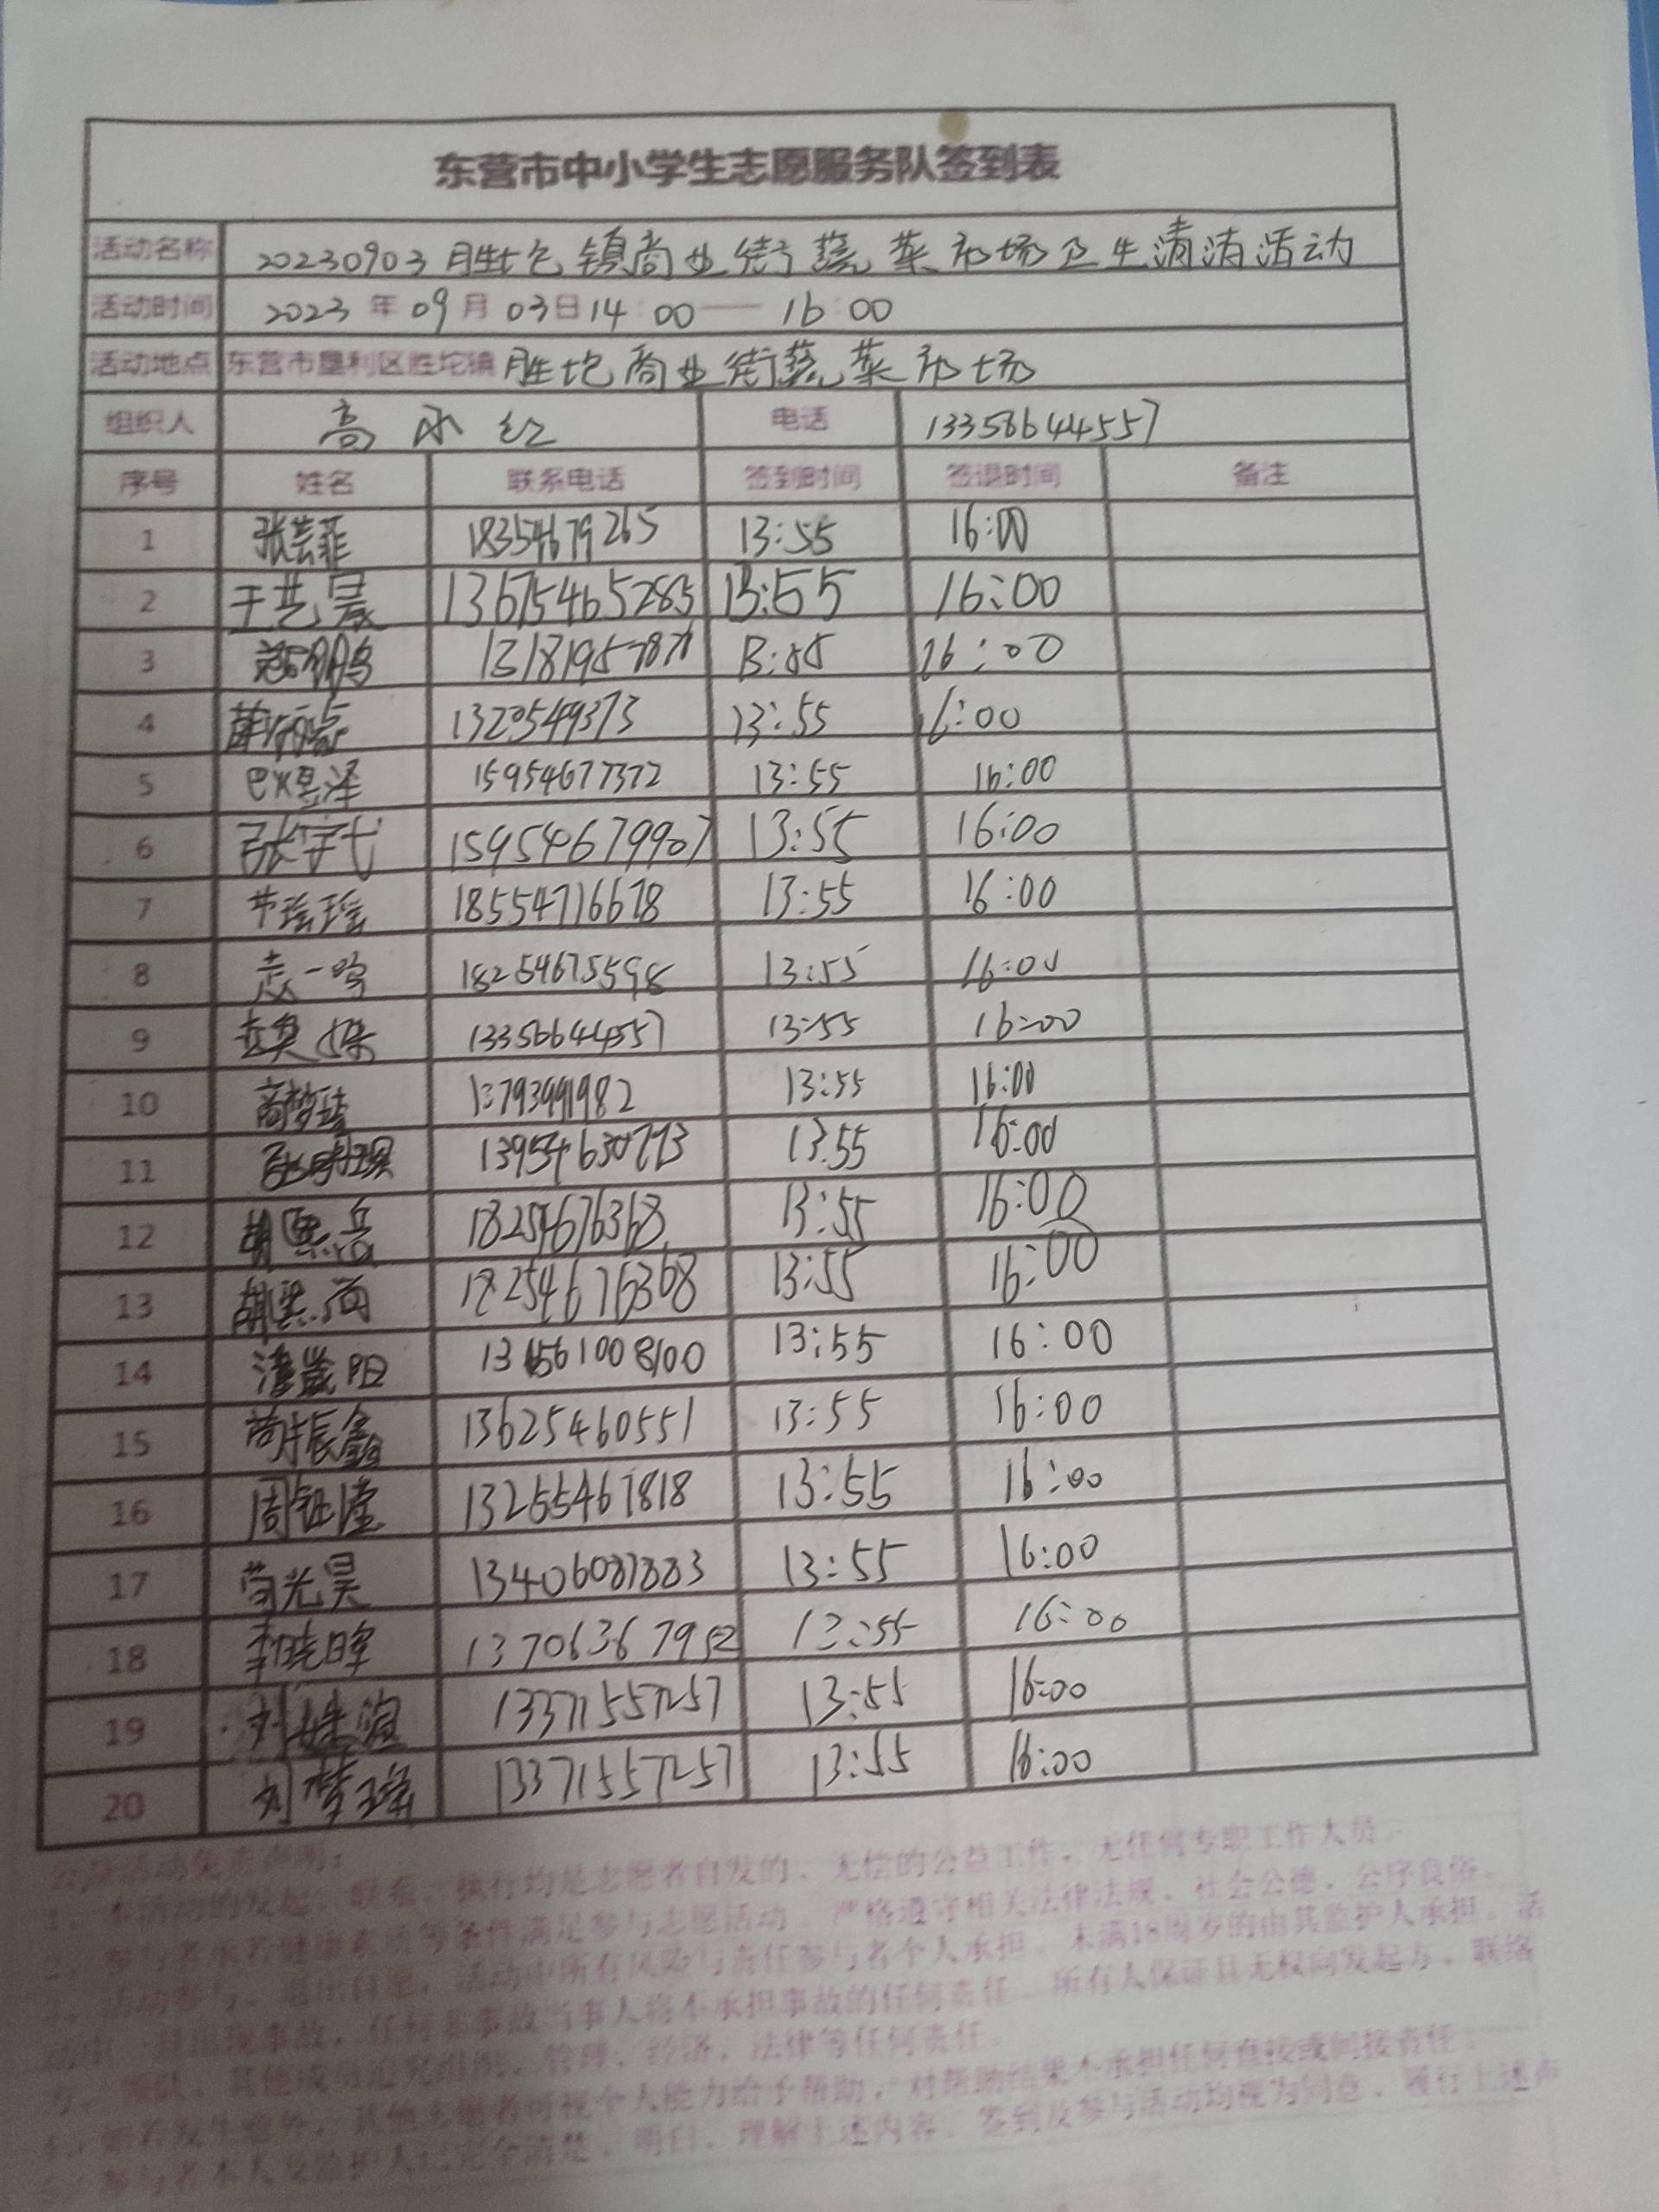 东营市中小学生志愿服务队签到表
活动名称 20230903胜坨镇商业街蔬菜市场卫生清洁活动
活动时间 2023年09月03日14:00——16:00
活动地点 东营市垦利区胜坨镇 胜坨商业街蔬菜市场
组织人 高 红 电话 13356644557
序号 姓名 联系电话 签到时间 签退时间 备注
1 张芸菲 18354679265 13:55 16:00
2 于艺晨 13675465283 13:55 16:00
3 13:55 16:00
4 1320549373 13:55 16:00
5 巴煜泽 15954677372 13:55 16:00
6 张宇弋 159540679907 13:55 16:00
7 瑶瑶 18554716678 13:55 16:00
8 一鸣 18254675598 13:55 16:00
9 13356644557 13:55 16:00
10 13793991982 13:55 16:00
11 13:55 16:00
12 胡熙岳 18254676368 13:55 16:00
13 胡熙尚 18254676368 13:55 16:00
14 13:55 16:00
15 振鑫 13625460551 13:55 16:00
16 周钲滢 13255467818 13:55 16:00
17 苟光昊 13406087883 13:55 16:00
18 李晓晖 13706367952 13:55 16:00
19 13371557257 13:55 16:00
20 刘梦瑶 13371557257 13:55 16:00
活动免责声明：
1、本活动的发起、联系、执行均是志愿者自发的、无偿的公益工作，无任何专职工作人员。
2、参与者承若健康素质等条件满足参与志愿活动、严格遵守相关法律法规、社会公德、公序良俗。
3、活动参与、退出自愿，活动中所有风险与责任参与者个人承担，未满18周岁的由其监护人承担。活
动中一旦出现事故，任何非事故当事人将不承担事故的任何责任。所有人保证且无权向发起方、联络
方、领队、其他成员追究组织、管理、经济、法律等任何责任。
4、如若发生意外，其他志愿者可视个人能力给予帮助，对帮助结果不承担任何直接或间接责任。
5、参与者本人及监护人已完全清楚、明白、理解上述内容，签到及参与活动均视为同意、履行上述声